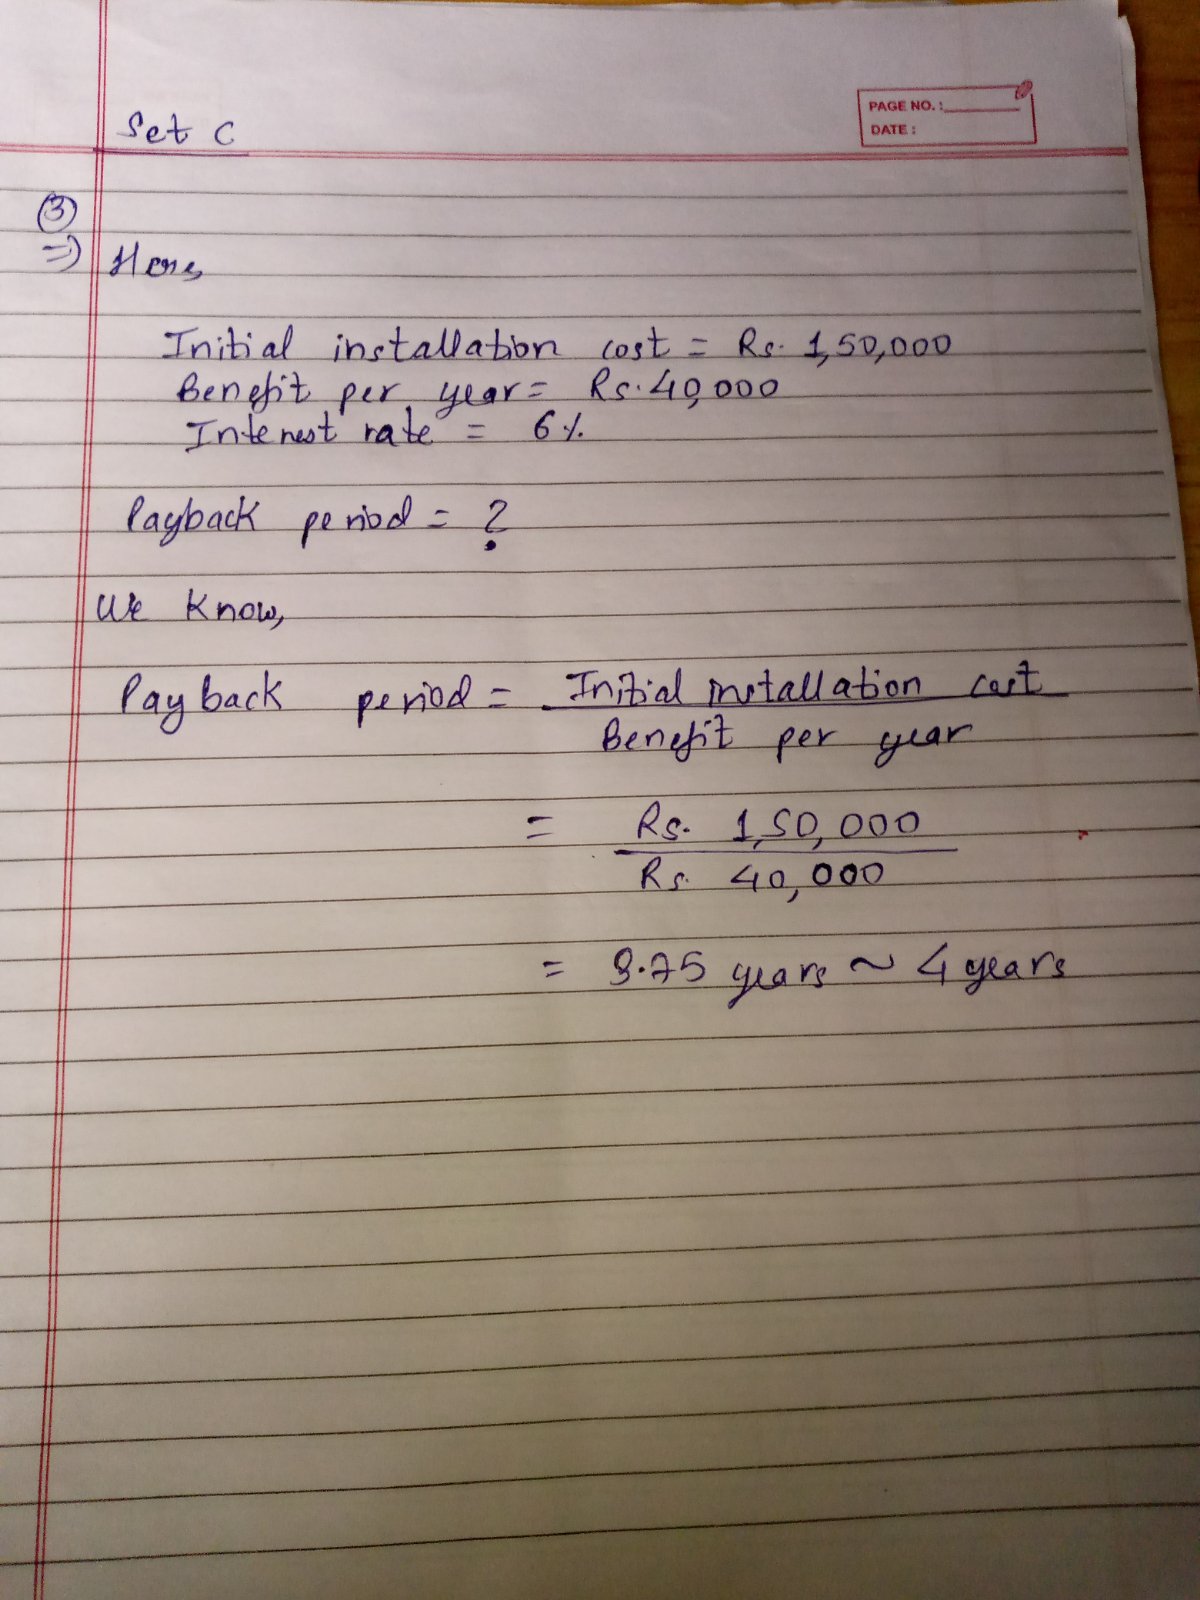 PAGE NO.:
DATE:
Set C
③
=> Here,
Initial installation cost = Rs. 1,50,000
Benefit per year = Rs. 40,000
Interest rate = 6%
Payback period = ?
We know,
Payback period = Initial installation cost
Benefit per year
= Rs. 1,50,000
Rs. 40,000
= 3.75 years ~ 4 years